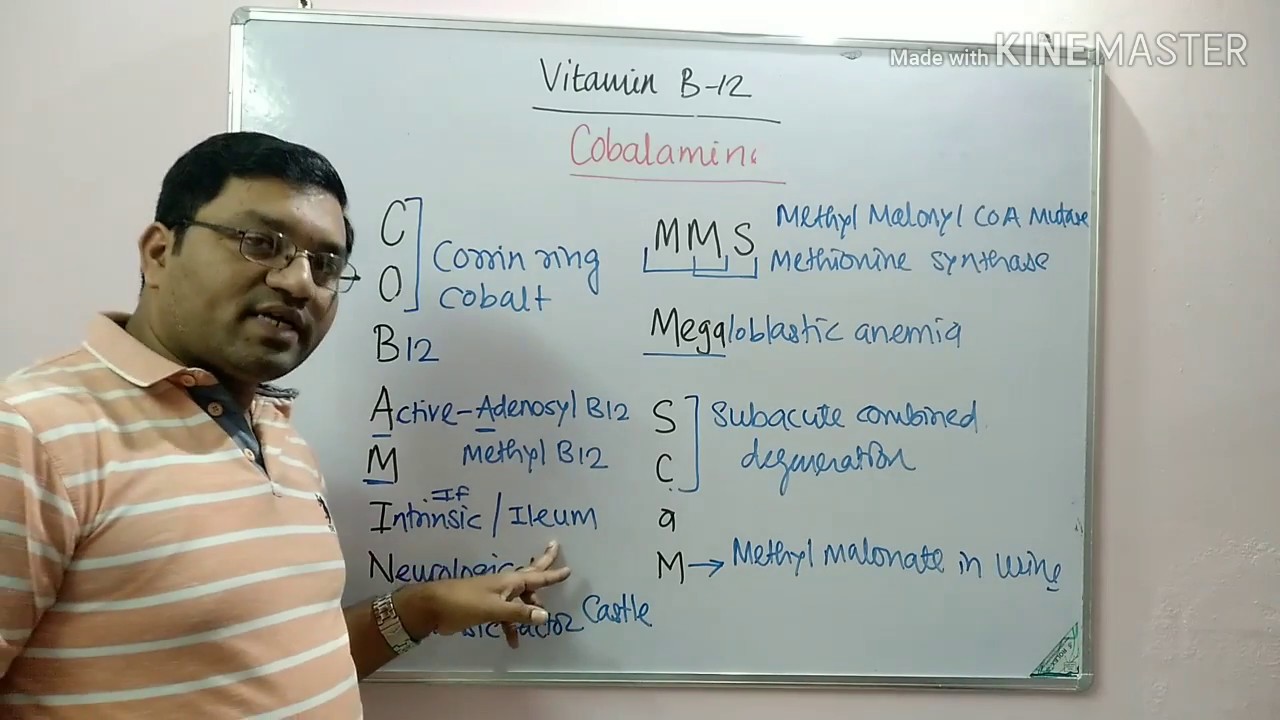 Made with KINEMASTER
Vitamin B-12
Cobalamin
C
O
Corrin ring
cobalt
B12
Active-Adenosyl B12
M
Methyl B12
If
Intrinsic / Ileum
Neurological
Factor Castle
MMS
Methyl Malonyl CoA Mutase
Methionine synthase
Megaloblastic anemia
S
C
Subacute combined
degeneration
a
M → Methyl malonate in urine